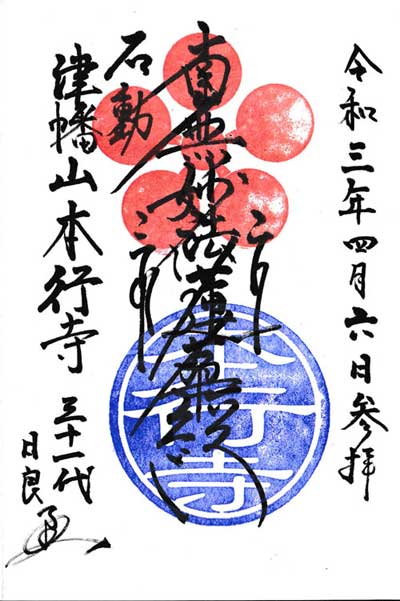 令和三年四月六日参拝
南無妙法蓮華経
石動
津幡山本行寺
三十一代
日良
本行寺